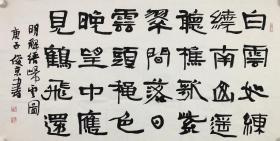 白雲如練
繞南山遥
聽樵歌紫
翠間落日
雲
晚望中應
見鶴飛還
明解縉歸雲圖
庚子俊京書